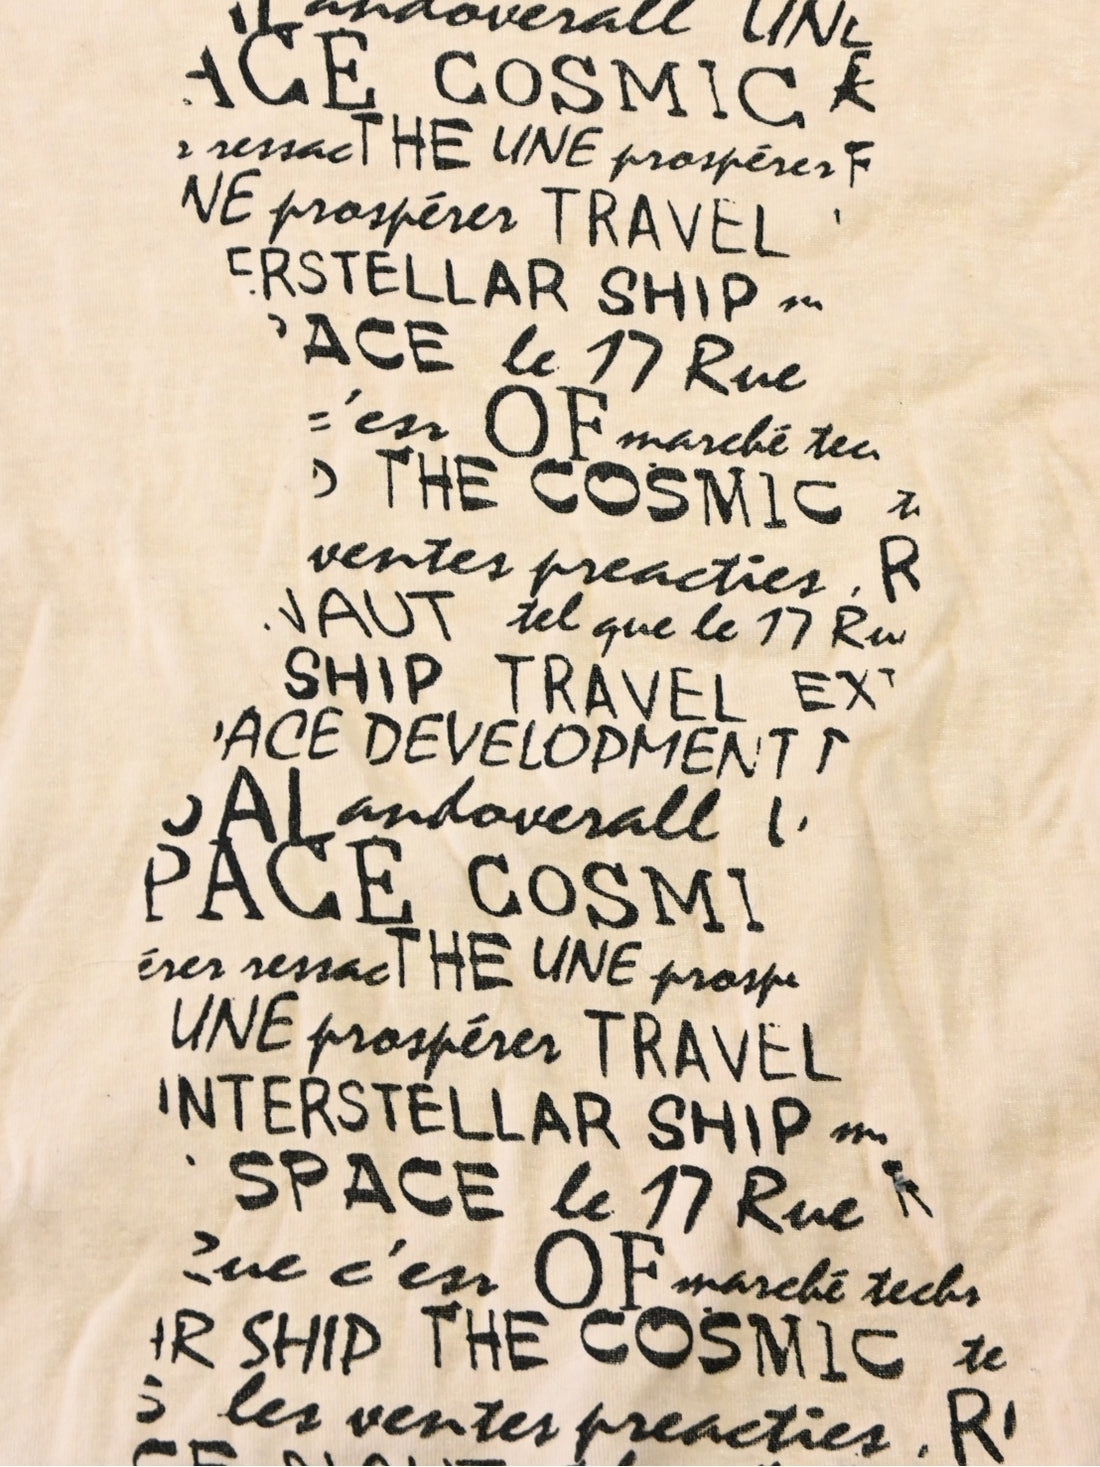 andoverall UNE
ACE COSMIC
ressac THE UNE prospérer
NE prospérer TRAVEL
ERSTELLAR SHIP
ACE le 17 Rue
c'esn OF marché
THE COSMIC
ventes preacties . R
NAUT tel que le 17 Ru
SHIP TRAVEL EX
ACE DEVELOPMENT
AL andoverall
PACE COSMI
érer ressac THE UNE prospé
UNE prospérer TRAVEL
INTERSTELLAR SHIP
SPACE le 17 Rue
Rue c'esn OF marché techs
R SHIP THE COSMIC te
S les ventes preacties . R